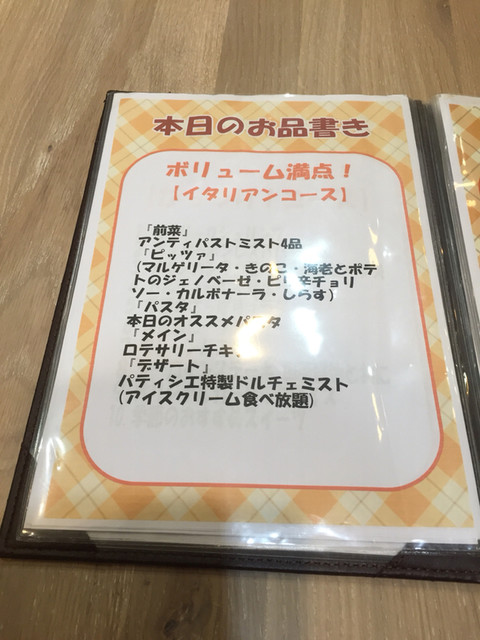 本日のお品書き
ボリューム満点！
【イタリアンコース】
「前菜」
アンティパストミスト4品
「ピッツァ」
(マルゲリータ・きのこ・海老とポテ
トのジェノベーゼ・ピリ辛チョリ
ソー・カルボナーラ・しらす)
「パスタ」
本日のオススメパスタ
「メイン」
ロテサリーチキン
「デザート」
パティシエ特製ドルチェミスト
(アイスクリーム食べ放題)